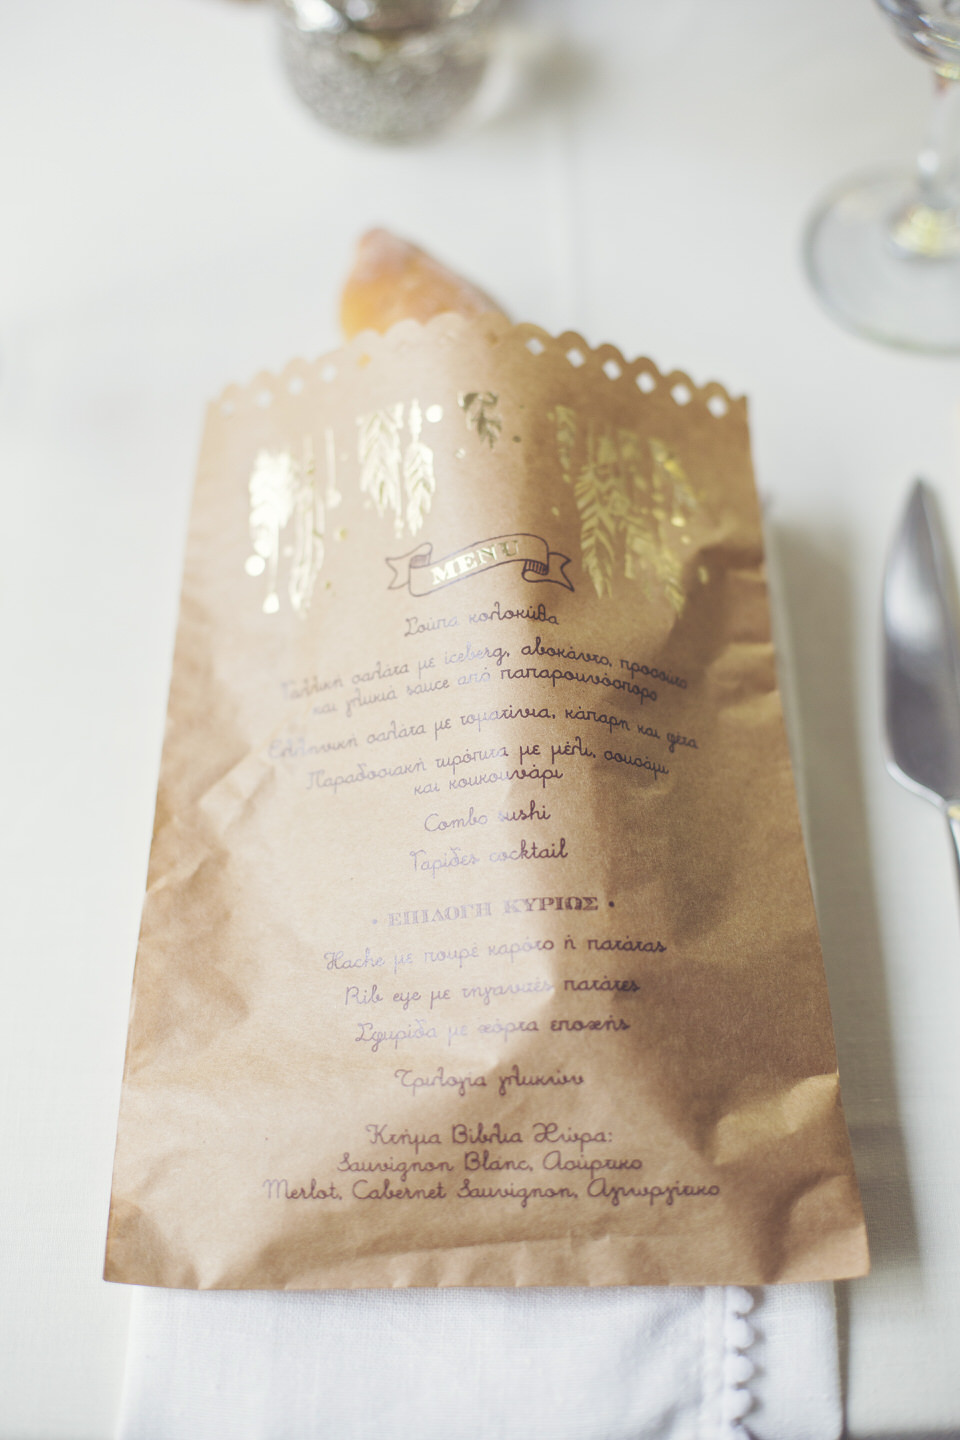 MENU
Σούπα κολοκύθα
Γαλλική σαλάτα με iceberg, αβοκάντο, προσούτο
και γλυκιά sauce από παπαρουνόσπορο
Ελληνική σαλάτα με τοματίνια, κάπαρη και φέτα
Παραδοσιακή τυρόπιτα με μέλι, σουσάμι
και κουκουνάρι
Combo sushi
Γαρίδες cocktail
• ΕΠΙΛΟΓΗ ΚΥΡΙΩΣ •
Hache με πουρέ καρότο ή πατάτας
Rib eye με τηγανιτές πατάτες
Σφυρίδα με χόρτα εποχής
Τριλογία γλυκών
Κτήμα Βίβλια Χώρα:
Sauvignon Blanc, Ασύρτικο
Merlot, Cabernet Sauvignon, Αγιωργίτικο